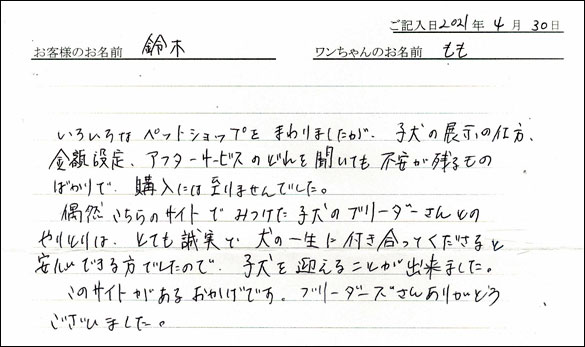 ご記入日2021年 4月 30日
お客様のお名前 鈴木 ワンちゃんのお名前 もも
いろいろな ペットショップを まわりましたが、子犬の展示の仕方、
金額設定、アフターサービスのどれを聞いても 不安が残るもの
ばかりで 購入には至りませんでした。
偶然 こちらのサイトで みつけた子犬のブリーダーさんとの
やりとりは、とても誠実で 犬の一生に付き合ってくださると
安心できる方でしたので、子犬を迎えることが出来ました。
このサイトがあるおかげです。ブリーダーズさんありがとう
ございました。